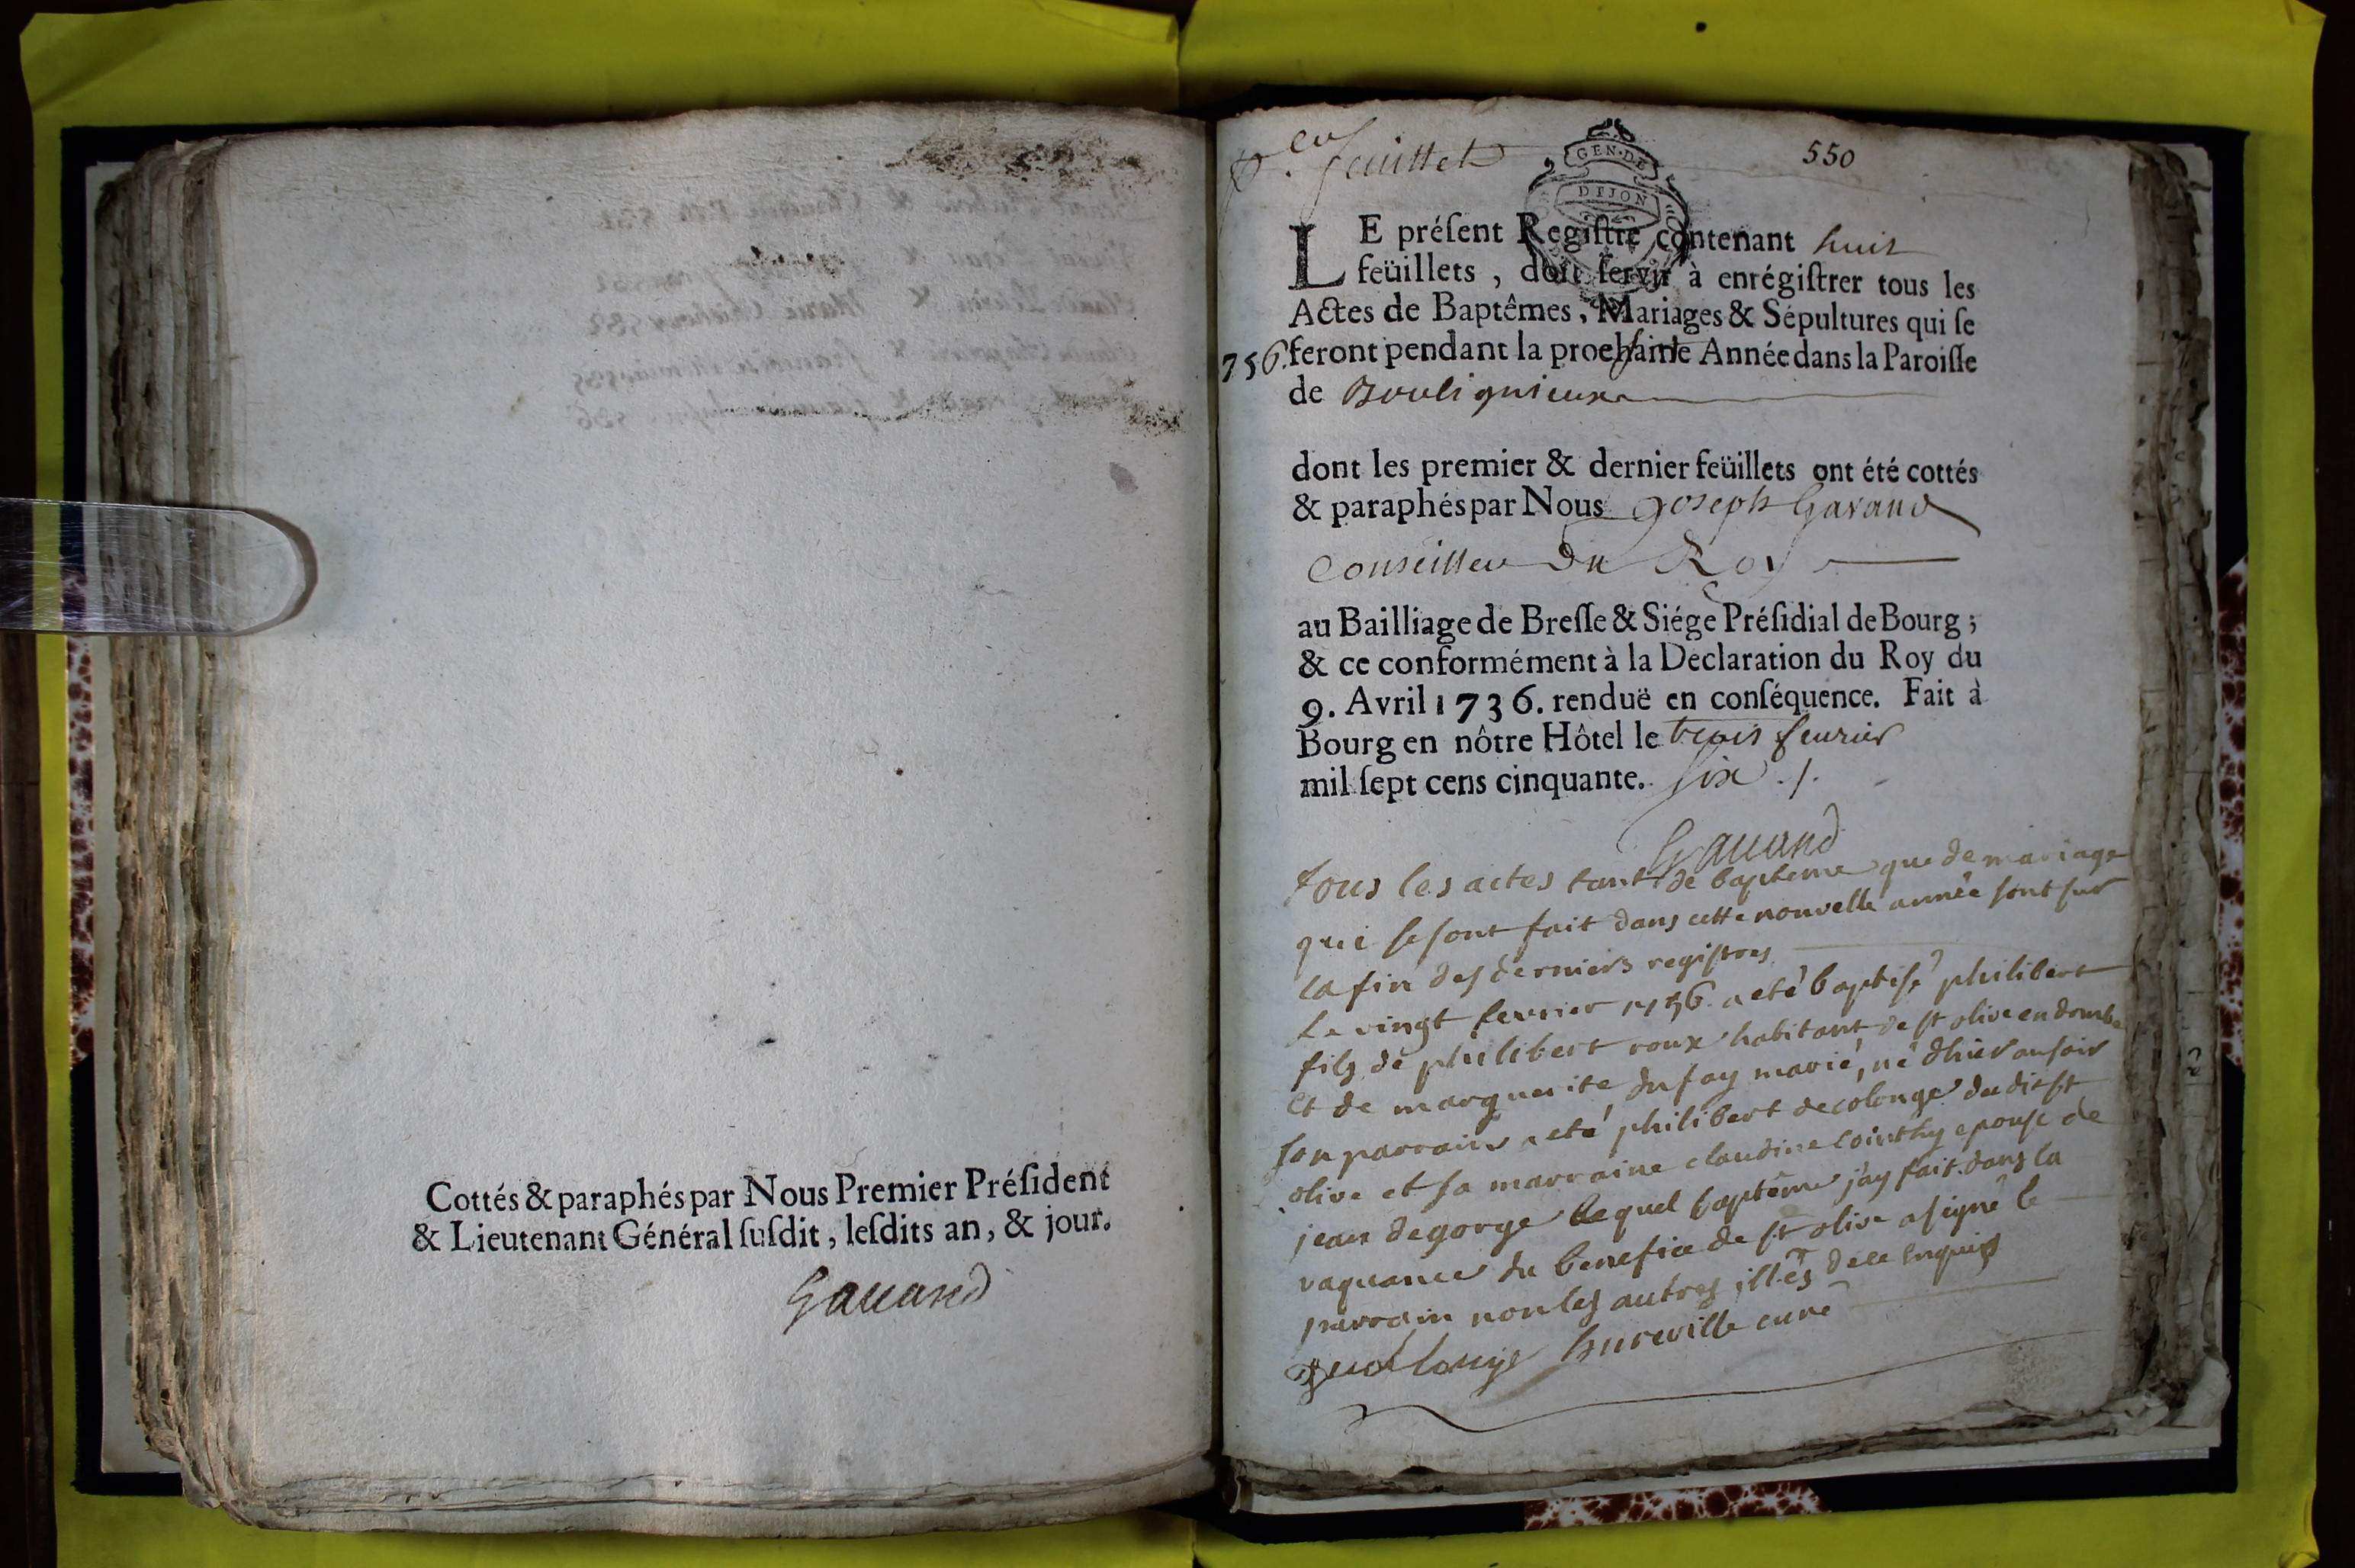 Cottés & paraphés par Nous Premier Président
& Lieutenant Général susdit, lesdits an, & jour.
Gauand
feuillet
550
GEN. DE
DIJON
LE présent Registre contenant huit
feüillets, doit servir à enrégistrer tous les
Actes de Baptêmes, Mariages & Sépultures qui se
756. feront pendant la prochaine Année dans la Paroisse
de Boulignieux
dont les premier & dernier feüillets ont été cottés
& paraphés par Nous Joseph Gavand
Conseiller du Roy
au Bailliage de Bresse & Siége Présidial de Bourg ;
& ce conformément à la Déclaration du Roy du
9. Avril 1736. renduë en conséquence. Fait à
Bourg en nôtre Hôtel le trois feurier
mil sept cens cinquante. six ./.
Gauand
tous les actes tant de bapteme que de mariage
qui se sont fait dans cette nouvelle année sont sur
la fin des derniers registres
Le vingt fevrier 1756 a eté baptisé philibert
fils de philibert roux habitant de st olive en dombe
et de marguerite dufay marié, né d'hier au soir
son parrain a eté philibert decolonge du dit st
olive et sa marraine claudine cointhy epouse de
jean degorge lequel baptême j'ay fait dans la
vaquance du benefice de st olive a signé le
parrain non les autres illés de ce enquis
hureville curé